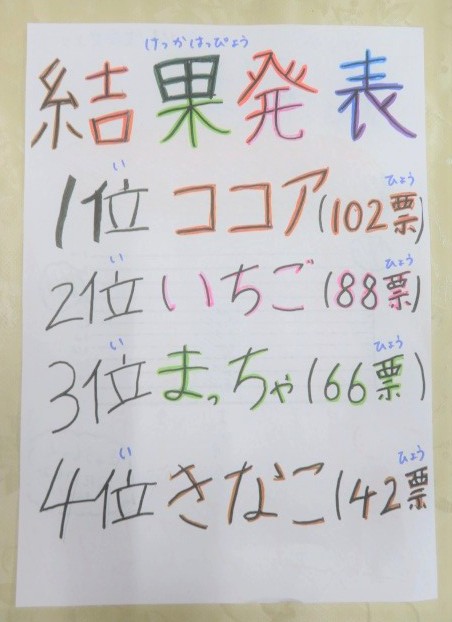 けっかはっぴょう
結果発表
い ひょう
1位 ココア(102票)
い ひょう
2位 いちご(88票)
い ひょう
3位 まっちゃ(66票)
い ひょう
4位 きなこ(42票